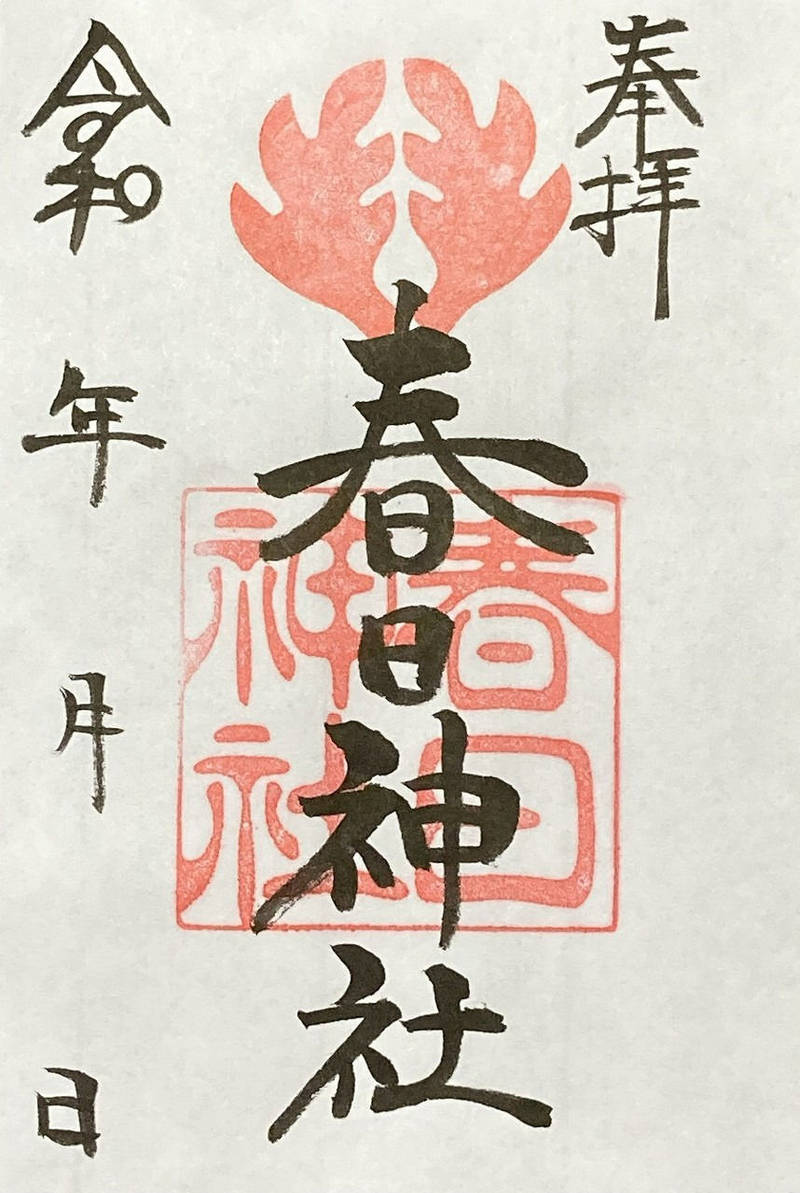 奉拝
春日神社
春日
神社
令和 年 月 日